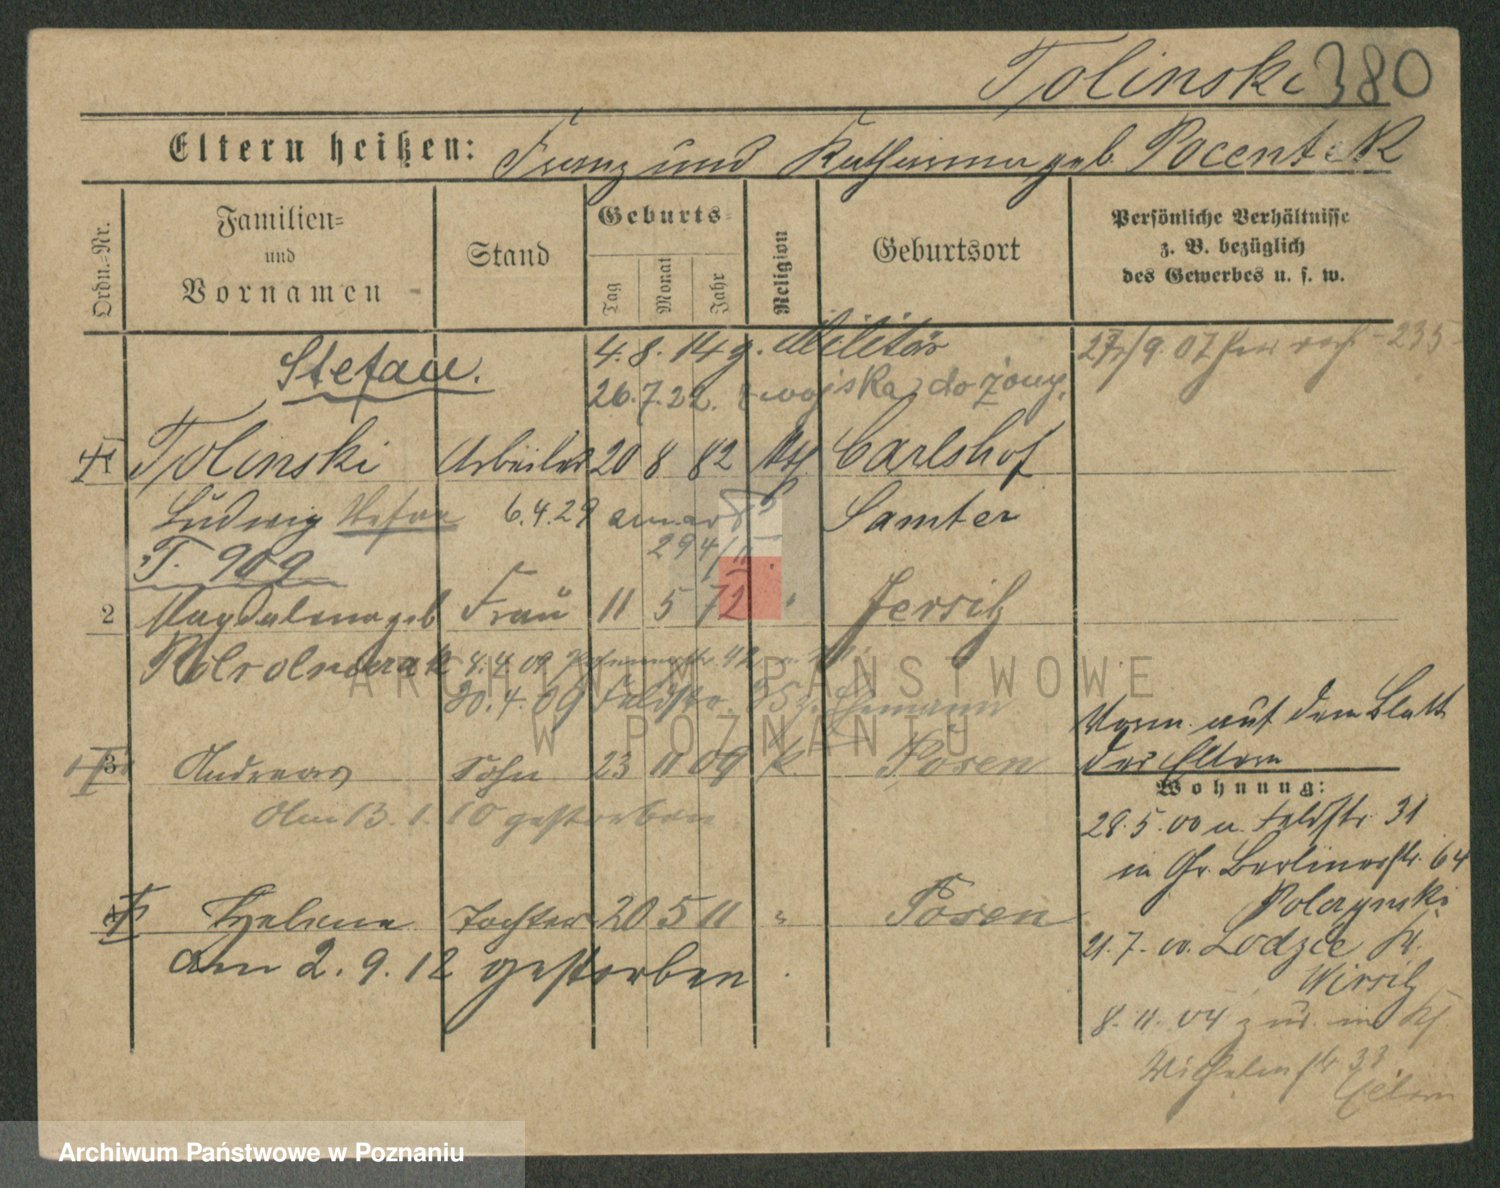 Tolinski 380
Eltern heißen: Franz und Katharina geb. Pocentek
Ordn.-Nr.
Familien-
und
Vornamen
Stand
Geburts-
Tag
Monat
Jahr
Religion
Geburtsort
Persönliche Verhältnisse
z. B. bezüglich
des Gewerbes u. s. w.
4. 8. 14 z. Militär
Stefan.
26.7.22. z wojska do żony.
1 Tolinski Arbeiter 20 8 82 Kth Carlshof
Ludwig 6.4.29 Samter
T. 909
2 Magdalena geb Frau 11 5 72 " Jersitz
8.4.09
20.4.09 Feldstr. Ehemann
Vorm. auf dem Blatt
der Eltern
3 Andreas Sohn 23 11 09 k. Posen
Wohnung:
Am 13. 1. 10 gestorben
28.5.00 u. Feldstr. 31
in Gr. Berlinerstr. 64
4 Helene Tochter 20 5 11 " Posen
am 2. 9. 12 gestorben
21.7.00. Kr.
Wirsitz
8.11.04 zur. in
Wilhelmstr 33
Eltern
ARCHIWUM PAŃSTWOWE
W POZNANIU
Archiwum Państwowe w Poznaniu